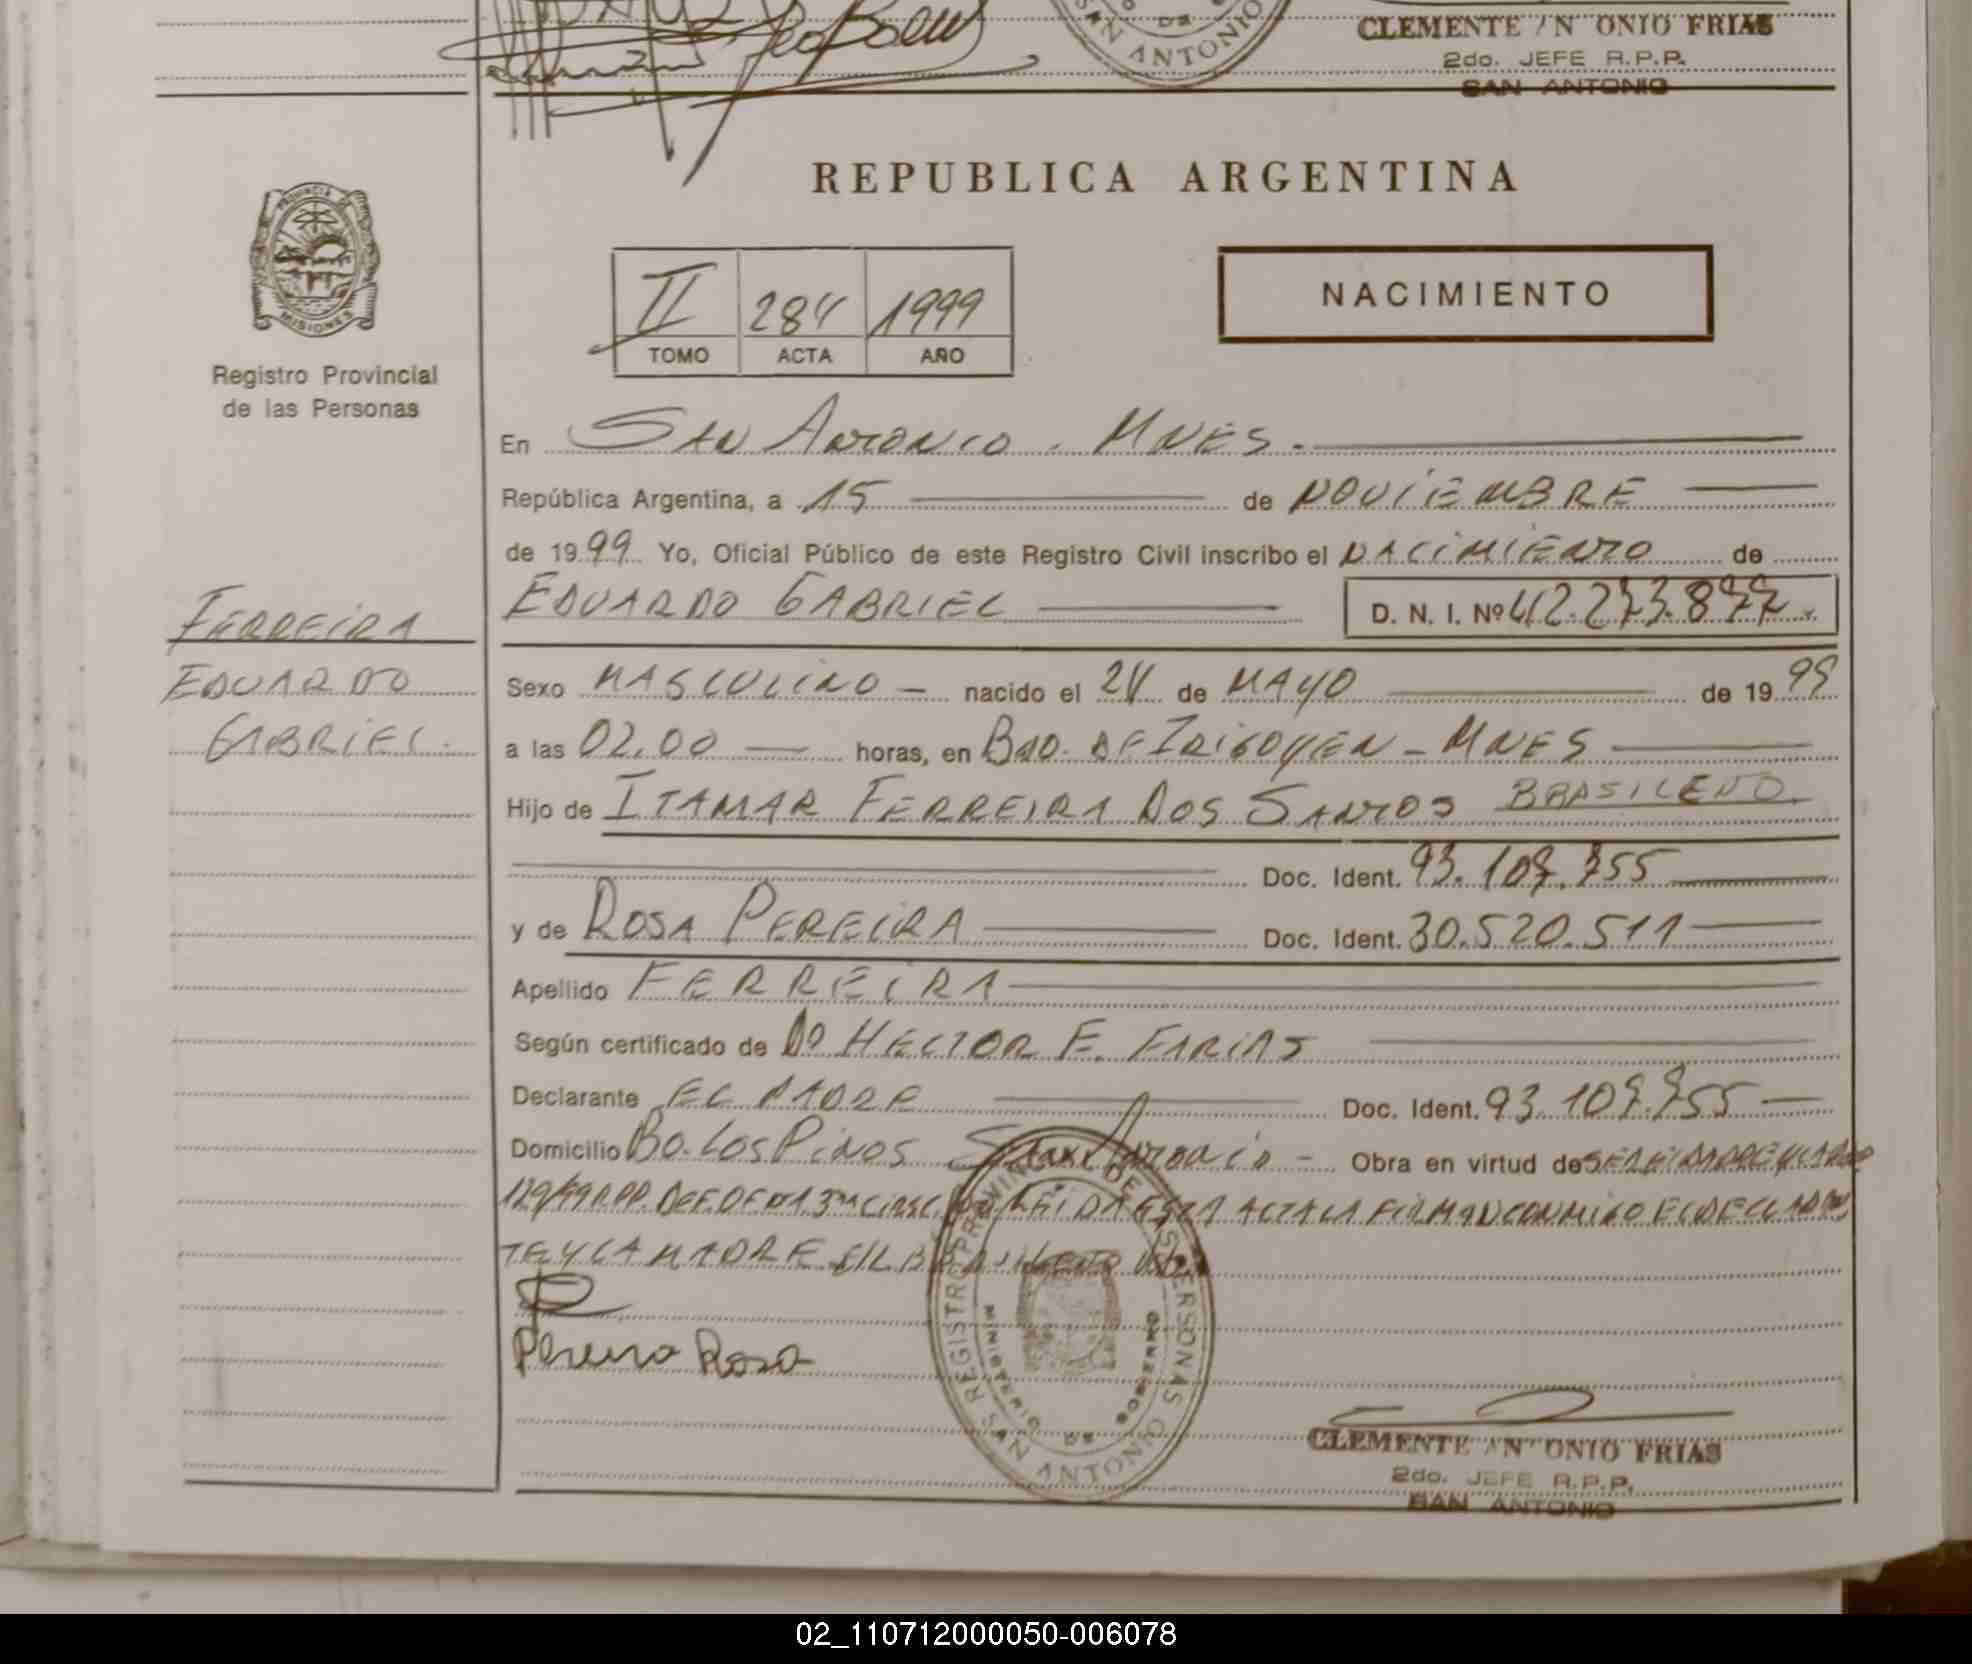 CLEMENTE ANTONIO FRIAS
2do. JEFE R.P.P.
SAN ANTONIO
SAN ANTONIO
DE
REPUBLICA ARGENTINA
PROVINCIA DE
MISIONES
Registro Provincial
de las Personas
II 284 1999
TOMO ACTA AÑO
NACIMIENTO
En SAN ANTONIO. MNES.
República Argentina, a 15 de NOVIEMBRE
de 1999 Yo, Oficial Público de este Registro Civil inscribo el NACIMIENTO de
EDUARDO GABRIEL D. N. I. Nº 42.273.877
FERREIRA
EDUARDO
GABRIEL.
Sexo MASCULINO nacido el 24 de MAYO de 1999
a las 02.00 horas, en BDO. DE IRIGOYEN - MNES
Hijo de ITAMAR FERREIRA DOS SANTOS BRASILENO.
Doc. Ident. 93.107.755
y de ROSA PEREIRA Doc. Ident. 30.520.511
Apellido FERREIRA
Según certificado de DO HECTOR F. FARIAS
Declarante EL PADRE Doc. Ident. 93.107.755
Domicilio BO. LOS PINOS SAN ANTONIO - Obra en virtud de
129/99 R.P.P. DEF. DE LA 3ra CIRSC. LEIDA ESTA ACTA LA FIRMAN CONMIGO EL DECLARAN
TE Y LA MADRE
Pereira Rosa
REGISTRO PROVINCIAL DE LAS PERSONAS
MINISTERIO DE GOBIERNO
SAN ANTONIO
CLEMENTE ANTONIO FRIAS
2do. JEFE R.P.P.
SAN ANTONIO
02_110712000050-006078